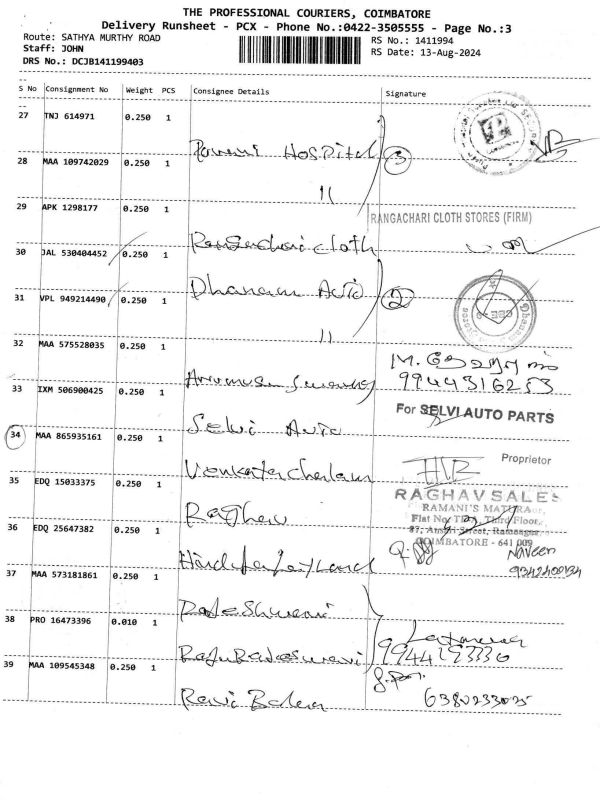 THE PROFESSIONAL COURIERS, COIMBATORE
Delivery Runsheet - PCX - Phone No.:0422-3505555 - Page No.:3
Route: SATHYA MURTHY ROAD
RS No.: 1411994
Staff: JOHN
RS Date: 13-Aug-2024
DRS No.: DCJB141199403
S No Consignment No Weight PCS Consignee Details Signature
27 TNJ 614971 0.250 1
Hospital
28 MAA 109742029 0.250 1
3
"
29 APK 1298177 0.250 1
RANGACHARI CLOTH STORES (FIRM)
Rangachari cloth
30 JAL 530404452 0.250 1
Dhanam Auto
31 VPL 949214490 0.250 1
2
"
32 MAA 575528035 0.250 1
33 IXM 506900425 0.250 1
For SELVI AUTO PARTS
Selvi Auto
34 MAA 865935161 0.250 1
Proprietor
Venkatachalam
35 EDQ 15033375 0.250 1
RAGHAV SALES
RAMANI'S
Flat No. Third Floor,
Street, Ramnagar
COIMBATORE - 641 009
Raghav
36 EDQ 25647382 0.250 1
Naveen
37 MAA 573181861 0.250 1
Rajeshwari
38 PRO 16473396 0.010 1
39 MAA 109545348 0.250 1
6380233025
Ravi